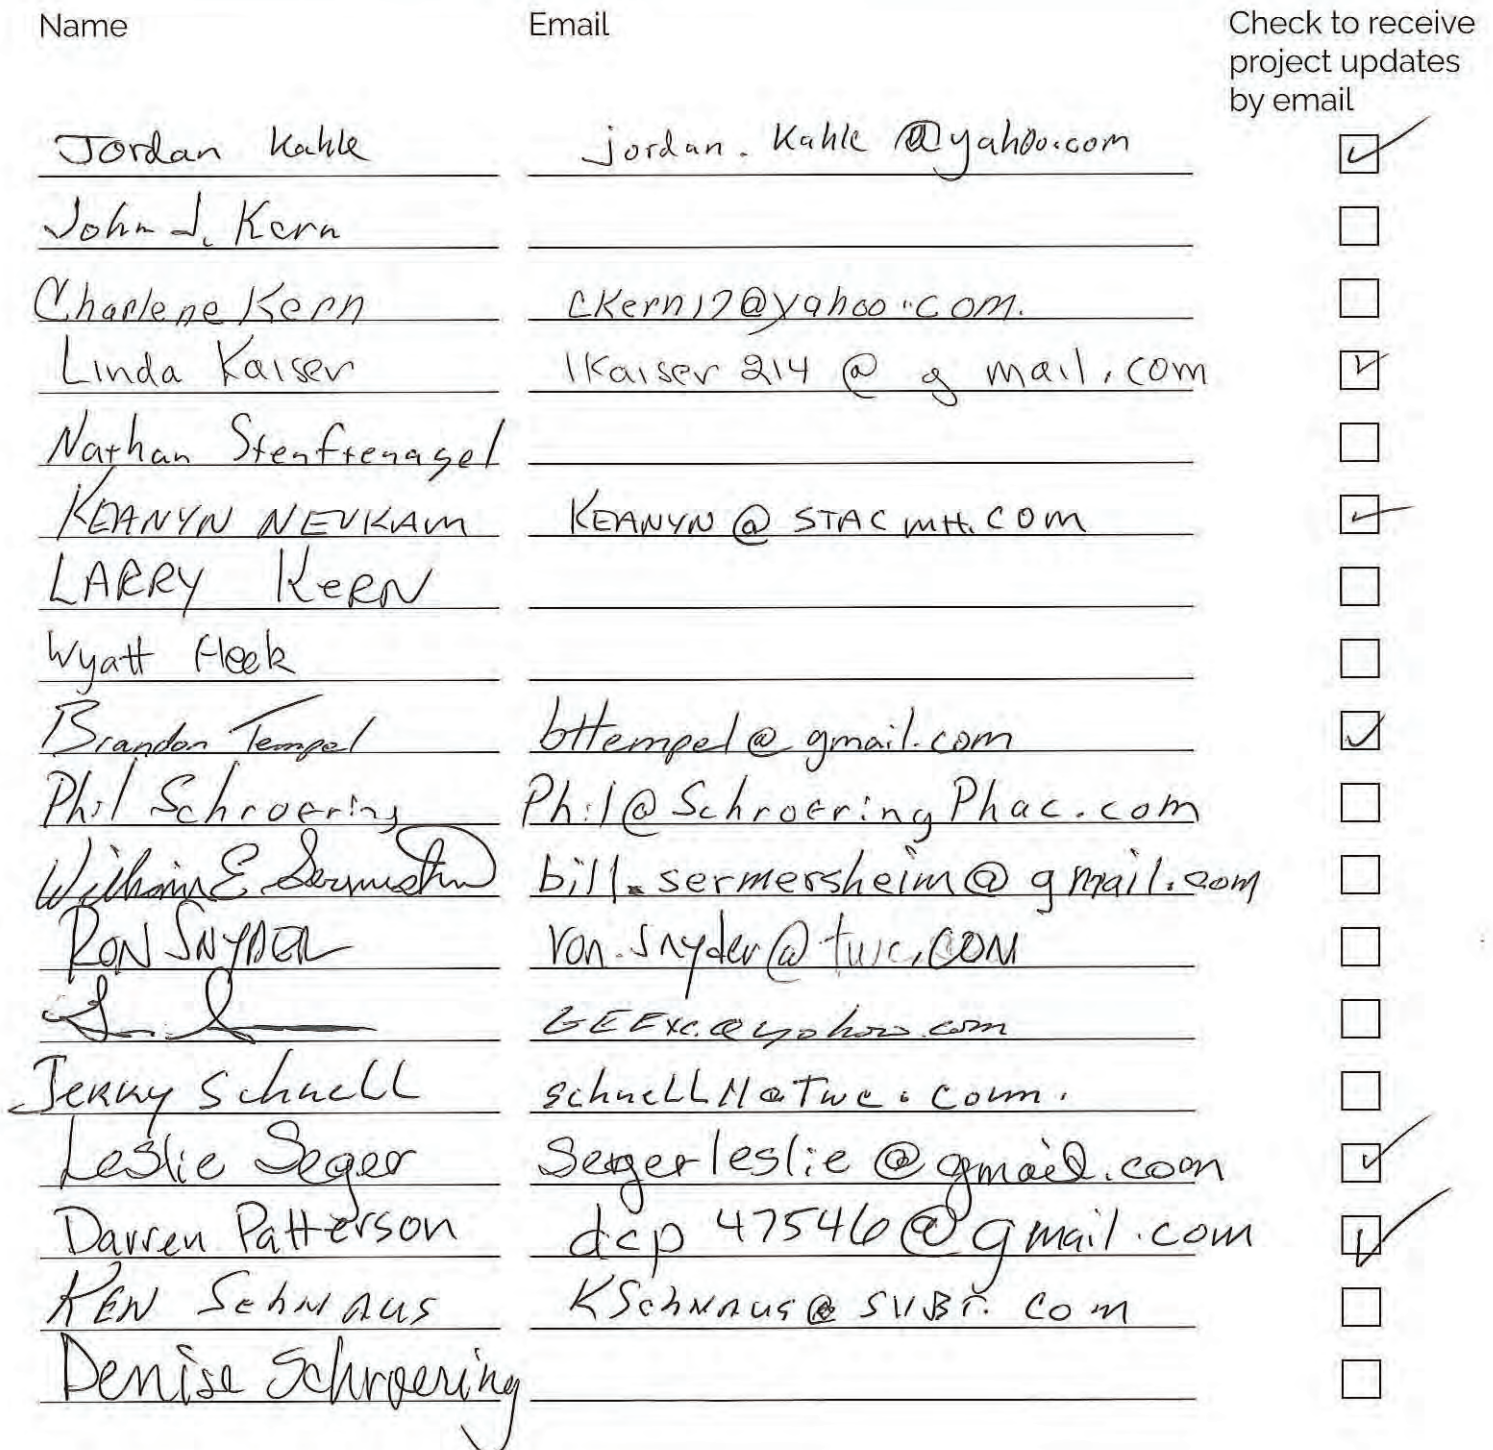 Name Email Check to receive
project updates
by email
Jordan Kahle jordan.Kahle@yahoo.com
John J. Kern
Charlene Kern CKern17@yahoo.com.
Linda Kaiser lKaiser214@gmail.com
Nathan Stenftenagel
KEANYN NEUKAM KEANYN@STACMH.COM
LARRY KERN
Wyatt Fleek
Brandon Tempel bttempel@gmail.com
Phil Schroering Phil@SchroeringPhac.com
William E bill.sermersheim@gmail.com
RON SNYDER ron.snyder@twc.COM
GEExc@yahoo.com
Jerry Schnell schnell11@Twc.com.
Leslie Seger Segerleslie@gmail.com
Darren Patterson dcp47546@gmail.com
KEN Schnaus
Denise Schroering